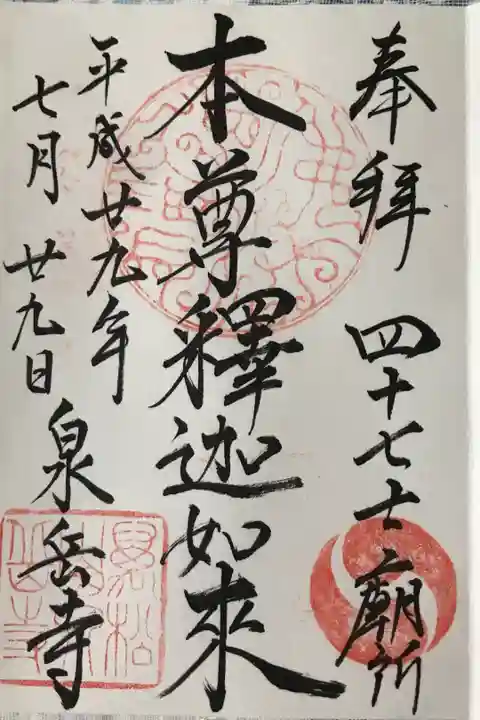 奉拜 四十七士廟所
本尊釋迦如來
平成廿九年
七月廿九日
泉岳寺